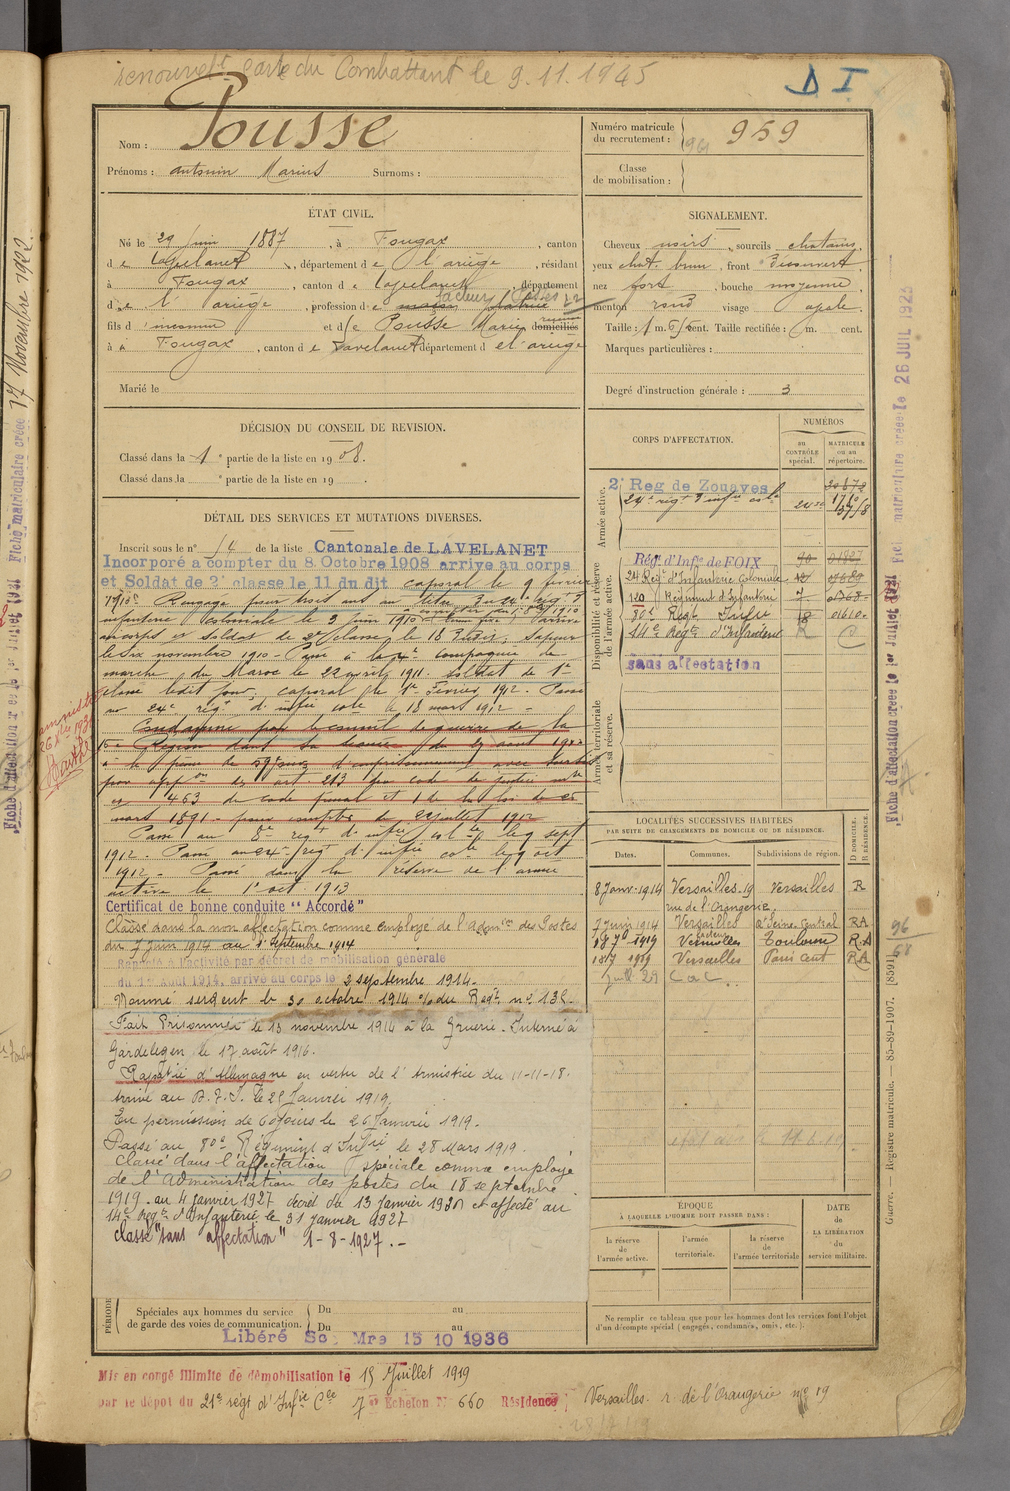 renouvelt carte du Combattant le 9.11.1945
D I
Nom : Pousse
Prénoms : Antonin Marius Surnoms :
Numéro matricule du recrutement : 959
Classe de mobilisation :
ÉTAT CIVIL.
Né le 29 Juin 1887, à Fougax, canton
de Lavelanet, département de l'ariège, résidant
à Fougax, canton de Lavelanet, département
de l'ariège, profession de maçon facteur Postes
fils d'inconnu et de Pousse Marie domiciliés
à Fougax, canton de Lavelanet département de l'ariège
Marié le
SIGNALEMENT.
Cheveux noirs, sourcils chatains,
yeux chat. brun, front découvert,
nez fort, bouche moyenne,
menton rond visage ovale.
Taille : 1 m. 65 cent. Taille rectifiée : m. cent.
Marques particulières :
Degré d'instruction générale : 3
DÉCISION DU CONSEIL DE REVISION.
Classé dans la 1e partie de la liste en 1908.
Classé dans la e partie de la liste en 19 .
DÉTAIL DES SERVICES ET MUTATIONS DIVERSES.
Inscrit sous le n° 14 de la liste Cantonale de LAVELANET
Incorporé a compter du 8 Octobre 1908 arrivé au corps
et Soldat de 2e classe le 11 du dit caporal le 9 février
1910. Rengagé pour trois ans au 24e régt d'
infanterie Coloniale le 3 juin 1910
au corps et soldat de 2e classe le 18 Sapeur
le six novembre 1910 - Passé à la 4e compagnie de
marche du Maroc le 22 avril 1911. Soldat de 1e
classe ledit jour, caporal le 1er Février 1912. Passé
au 24e régt d'infie cole le 18 mars 1912 -
Condamné par le conseil de guerre de la
16e Région dans sa séance du 27 aout 1912
à la peine de jours d'emprisonnement avec sursis
par appon des art 213 du code de justice mre
et 463 du code pénal et 1 de la loi du 26
mars 1891 - pour
Passé au 8e régt d'infie cole le 9 sept
1912 - Passé au 24e régt d'infie cole le 9 oct
1912 - Passé dans la réserve de l'armée
active le 1er oct 1913
Certificat de bonne conduite "Accordé"
Classé dans la non affectation comme employé de l'admion des Postes
du 7 Juin 1914 au 1er Septembre 1914
Rappelé à l'activité par décret de mobilisation générale
du 1er Août 1914, arrivé au corps le 2 septembre 1914.
Nommé sergent le 30 octobre 1914 o/ du Régt n° 132.
Fait Prisonnier le 13 novembre 1914 à la Gruerie - Interné à
Gardelegen le 17 août 1916.
Rapatrié d'Allemagne en vertu de l'armistice du 11-11-18.
Arrivé au D.T.I. le 25 Janvier 1919.
En permission de 60 jours le 26 Janvrie 1919.
Passé au 80e Régiment d'Infie le 28 Mars 1919.
Classé dans l'affectation spéciale comme employé
de l'Administration des postes du 18 septembre
1919 au 4 janvier 1927 décret du 13 Janvier 1930 et affecté au
14e Régt d'Infanterie le 31 janvier 1927
classé "sans affectation" 1-8-1927.-
PÉRIODE
Spéciales aux hommes du service de garde des voies de communication.
Du au
Du au
Libéré Sce Mre 15 10 1936
CORPS D'AFFECTATION.
NUMÉROS
au CONTRÔLE spécial.
MATRICULE ou au répertoire.
Armée active.
2e Reg de Zouaves
24e régt d'infie cole
Disponibilité et réserve de l'armée active.
Régt d'Infie de FOIX 90
24 Régt d'Infanterie Coloniale
120 Régiment d'Infanterie
80e Régt Infie 18 01610
14e Régt d'Infanterie
sans affectation
Armée territoriale et sa réserve.
LOCALITÉS SUCCESSIVES HABITÉES
PAR SUITE DE CHANGEMENTS DE DOMICILE OU DE RÉSIDENCE.
Dates. Communes. Subdivisions de région. D DOMICILE. R RÉSIDENCE.
8 Janv. 1914 Versailles. 19 rue de l'Orangerie. Versailles R
7 Juin 1914 Versailles Seine Central RA
1919 Vernolles Toulouse R.A
18/7 1919 Versailles Paris Cent RA
29 C a C
ÉPOQUE
À LAQUELLE L'HOMME DOIT PASSER DANS :
la réserve de l'armée active. l'armée territoriale. la réserve de l'armée territoriale
DATE de LA LIBÉRATION du service militaire.
Ne remplir ce tableau que pour les hommes dont les services font l'objet
d'un décompte spécial (engagés, condamnés, omis, etc.).
Mis en congé illimité de démobilisation le 15 Juillet 1919
par le dépôt du 21e régt d'Infie Cle 7e Echelon N° 660 Résidence Versailles. r. de l'Orangerie n° 19
Fiche matriculaire créée 17 Novembre 1922
Fiche d'affectation créée le 1er Juillet 1931
amnistié
matriculaire créée le 26 JUIL 1923
Fiche d'affectation créée le 1er Juillet 1931
96
Guerre. — Registre matricule. — 85-89-1907. [8591]